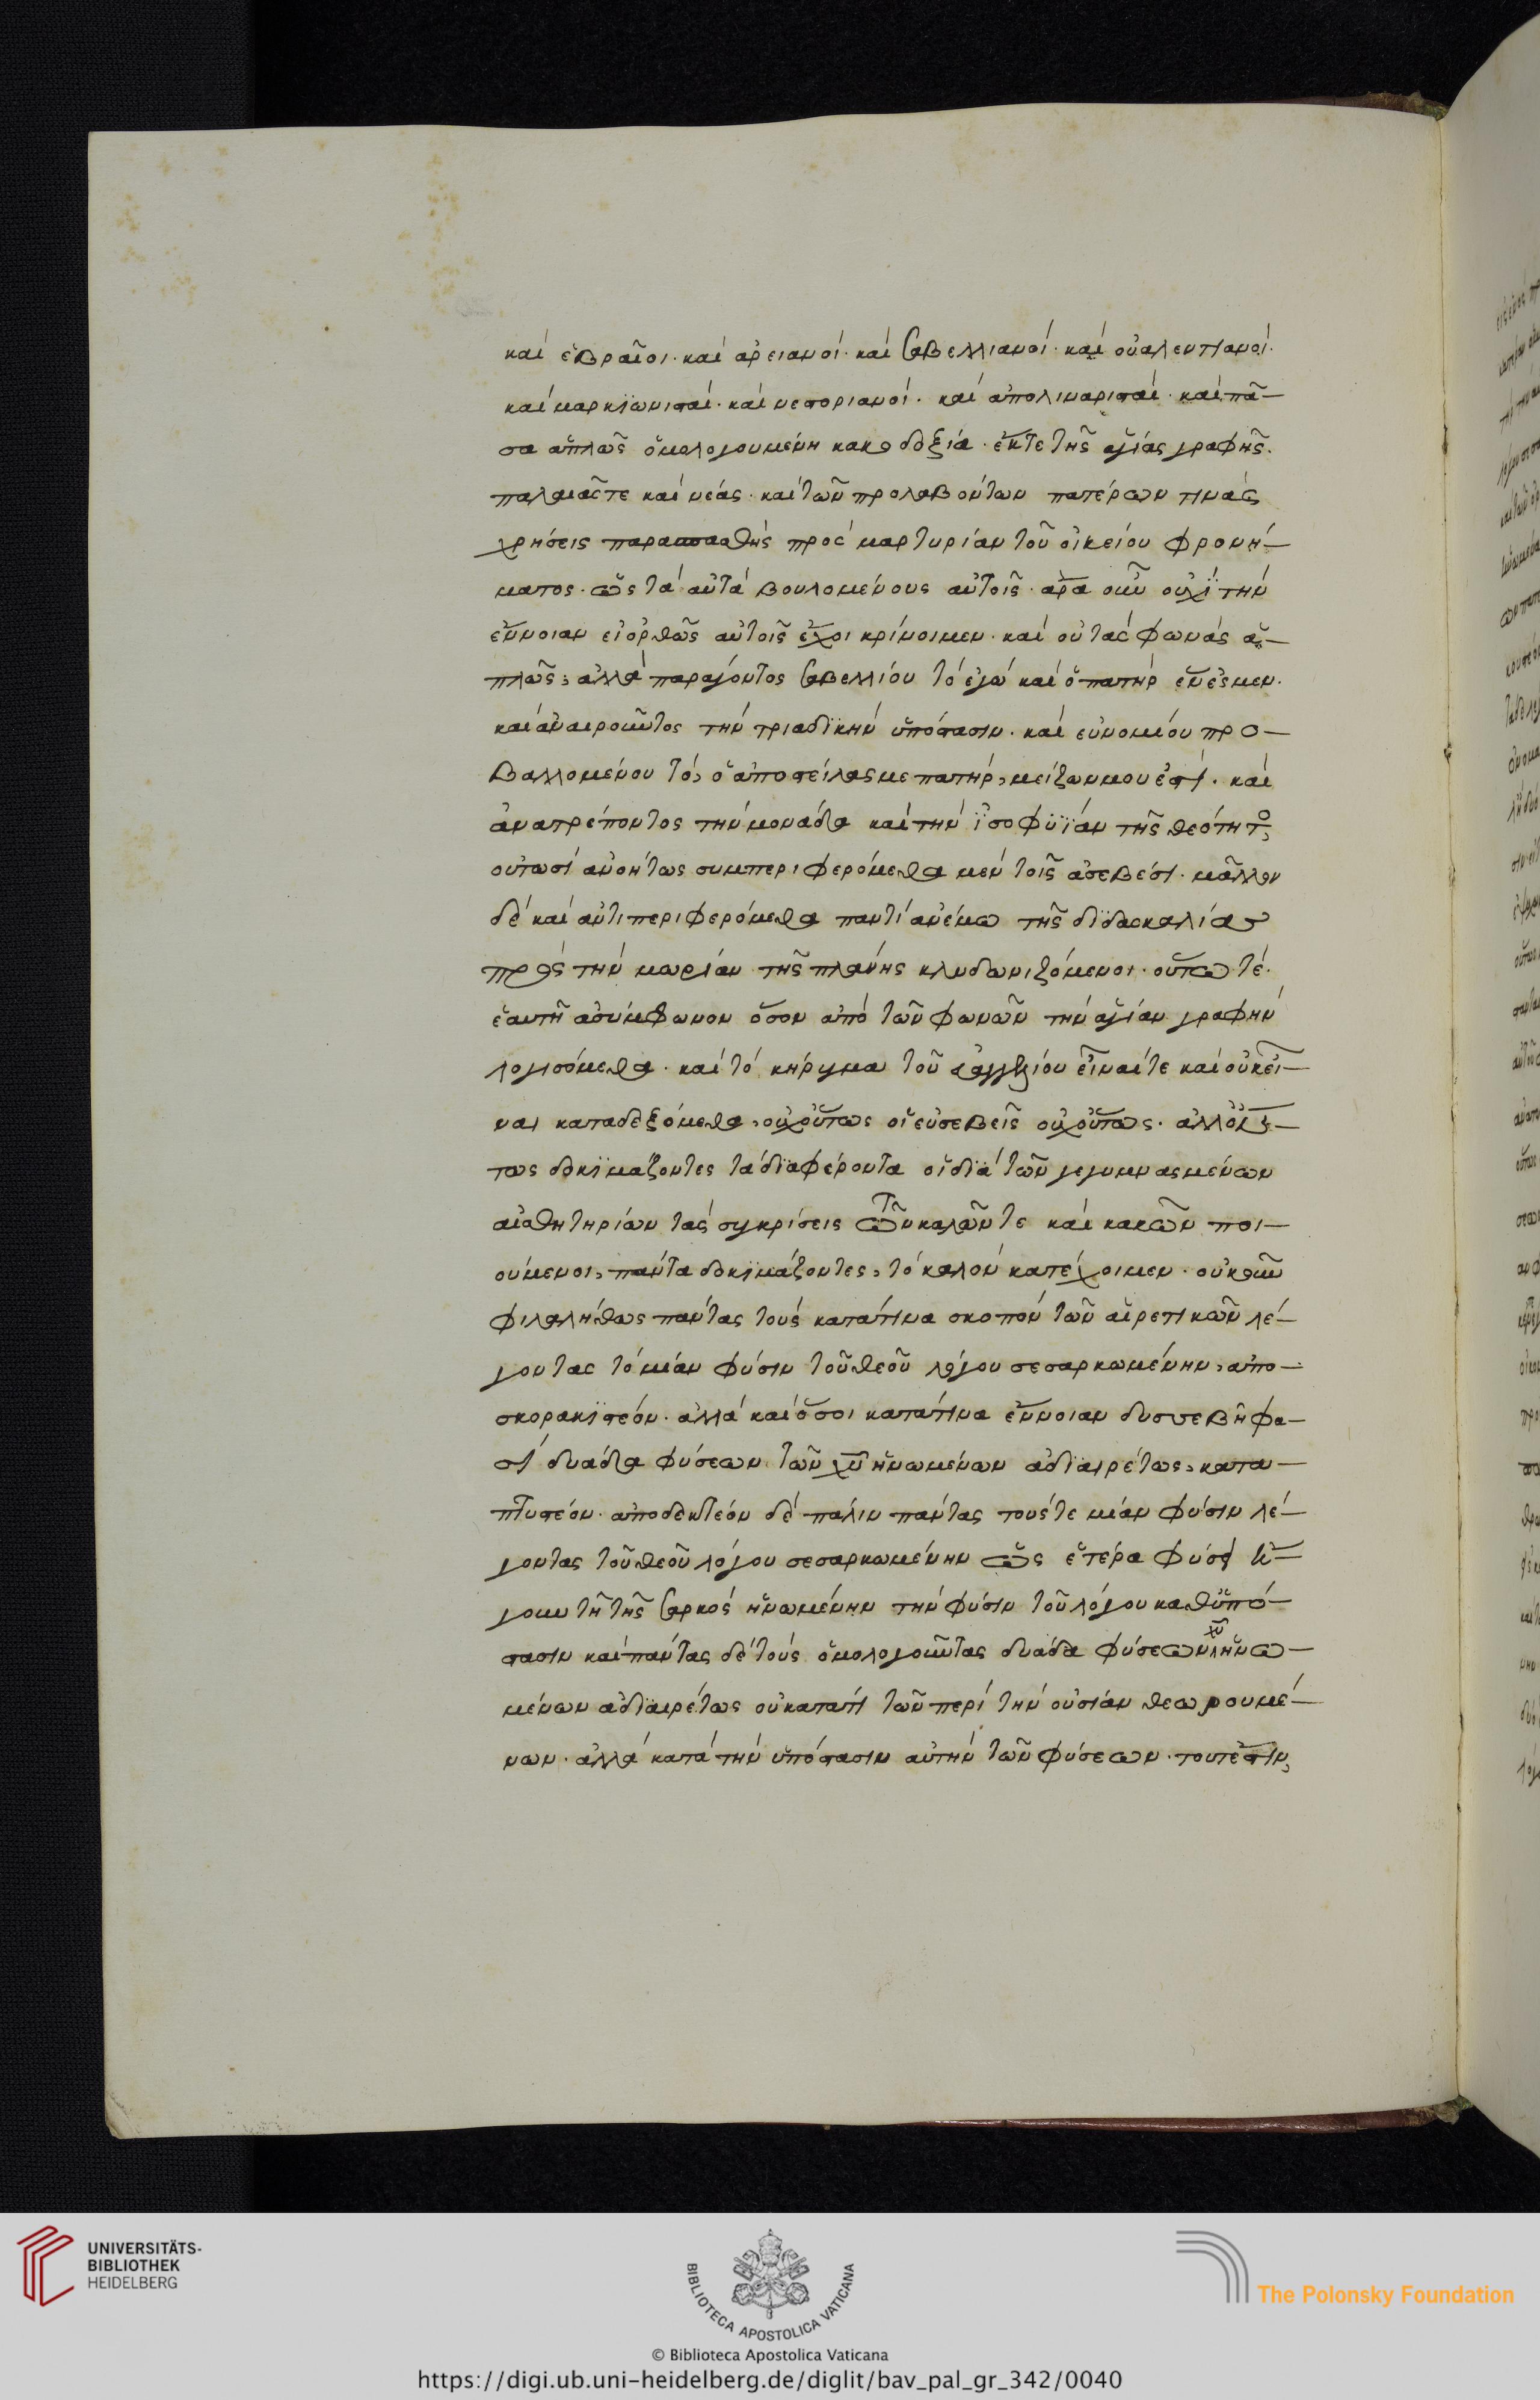 καὶ ἑβραῖοι· καὶ ἀρειανοί· καὶ σαβελλιανοί· καὶ οὐαλεντιανοί·
καὶ μαρκϊωνισταί· καὶ νεστοριανοί· καὶ ἀπολιναρισταί· καὶ πᾶ–
σα ἁπλῶς ὁμολογουμένη κακοδοξία· ἔκτε τῆς ἁγίας γραφῆς·
παλαιᾶς τε καὶ νέας· καὶ τῶν προλαβόντων πατέρων τινὰς
χρήσεις πρὸς μαρτυρίαν τοῦ οἰκείου φρονή–
ματος· ὡς τὰ αὐτὰ βουλομένους αὐτοῖς· ἆρα οὖν οὐχὶ τὴν
ἔννοιαν εἰ ὀρθῶς αὐτοῖς ἔχοι κρίνοιμεν· καὶ οὐ τὰς φωνὰς ἁ–
πλῶς, ἀλλὰ παράγοντος σαβελλίου τὸ ἐγὼ καὶ ὁ πατὴρ ἕν ἐσμεν·
καὶ ἀναιροῦντος τὴν τριαδϊκὴν ὑπόστασιν· καὶ εὐνομίου προ–
βαλλομένου τό, ὁ ἀποστείλας με πατήρ, μείζων μου ἐστί· καὶ
ἀνατρέποντος τὴν μονάδα καὶ τὴν ἰσοφϋΐαν τῆς θεότητος,
οὑτωσὶ ἀνοήτως συμπεριφερόμεθα μὲν τοῖς ἀσεβέσι· μᾶλλον
δὲ καὶ ἀντιπεριφερόμεθα παντὶ ἀνέμω τῆς δϊδασκαλίας
πρὸς τὴν μωρίαν τῆς πλάνης κλυδωνιζόμενοι· οὕτω τέ·
ἑαυτῆ ἀσύμφωνον ὅσον ἀπὸ τῶν φωνῶν τὴν ἁγίαν γραφὴν
λογισόμεθα· καὶ τὸ κήρυγμα τοῦ εὐαγγελίου εἶναί τε καὶ οὐκ εἶ–
ναι καταδεξόμεθα, οὐχ οὕτως οἱ εὐσεβεῖς οὐχ οὕτως· ἀλλ' ὄν–
τως δοκϊμάζοντες τὰ δϊαφέροντα οἱ δϊὰ τῶν γεγυμνασμένων
αἰσθητηρίων τὰς συγκρίσεις τῶν καλῶν τε καὶ κακῶν ποι–
ούμενοι, πάντα δοκϊμάζοντες, τὸ καλὸν κατέχοιμεν· οὐκοῦν
φιλαλήθως πάντας τοὺς κατά τινα σκοπὸν τῶν αἱρετικῶν λέ–
γοντας τὸ μίαν φύσιν τοῦ θεοῦ λόγου σεσαρκωμένην, ἀπο–
σκορακϊστέον· ἀλλὰ καὶ ὅσοι κατά τινα ἔννοιαν δυσσεβῆ φα–
σὶ δυάδα φύσεων τῶν χυ ἡνωμένων ἀδϊαιρέτως, κατα–
πτυστέον· ἀποδεκτέον δὲ πάλιν πάντας τούς τε μίαν φύσιν λέ–
γοντας τοῦ θεοῦ λόγου σεσαρκωμένην ὡς ἑτέρα φύσει ἤ–
γουν τῆ τῆς σαρκὸς ἡνωμένην τὴν φύσιν τοῦ λόγου καθ' ὑπό–
στασιν καὶ πάντας δὲ τοὺς ὁμολογοῦντας δυάδα φύσεων χυ ἡνω–
μένων ἀδϊαιρέτως οὐ κατά τι τῶν περὶ τὴν οὐσίαν θεωρουμέ–
νων· ἀλλὰ κατὰ τὴν ὑπόστασιν αὐτὴν τῶν φύσεων· τουτέστιν,
UNIVERSITÄTS-
BIBLIOTHEK
HEIDELBERG
BIBLIOTECA APOSTOLICA VATICANA
The Polonsky Foundation
© Biblioteca Apostolica Vaticana
https://digi.ub.uni-heidelberg.de/diglit/bav_pal_gr_342/0040